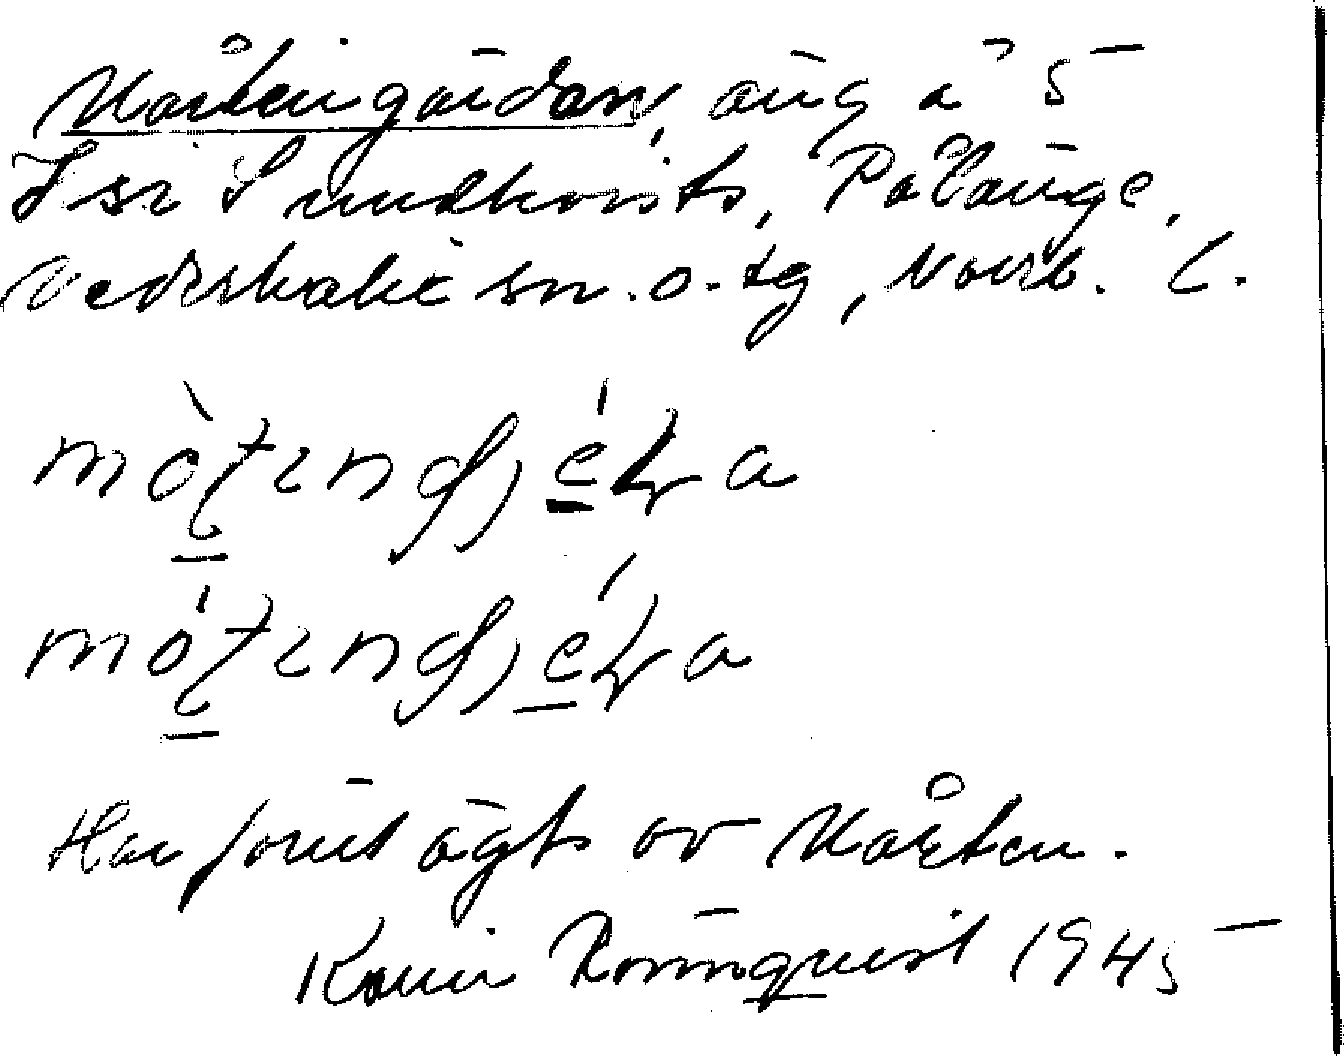 Mårtengärdan, äng å 5
Isr Sundkvists, Pålänge,
Nederkalix sn. o. tg, Norrb. l.
mò̱ṭɪnɡjé̱ḷa
mó̱ṭɪnɡjé̱ḷa
Har förut ägts av Mårten.
Karin Rönnquist 1945